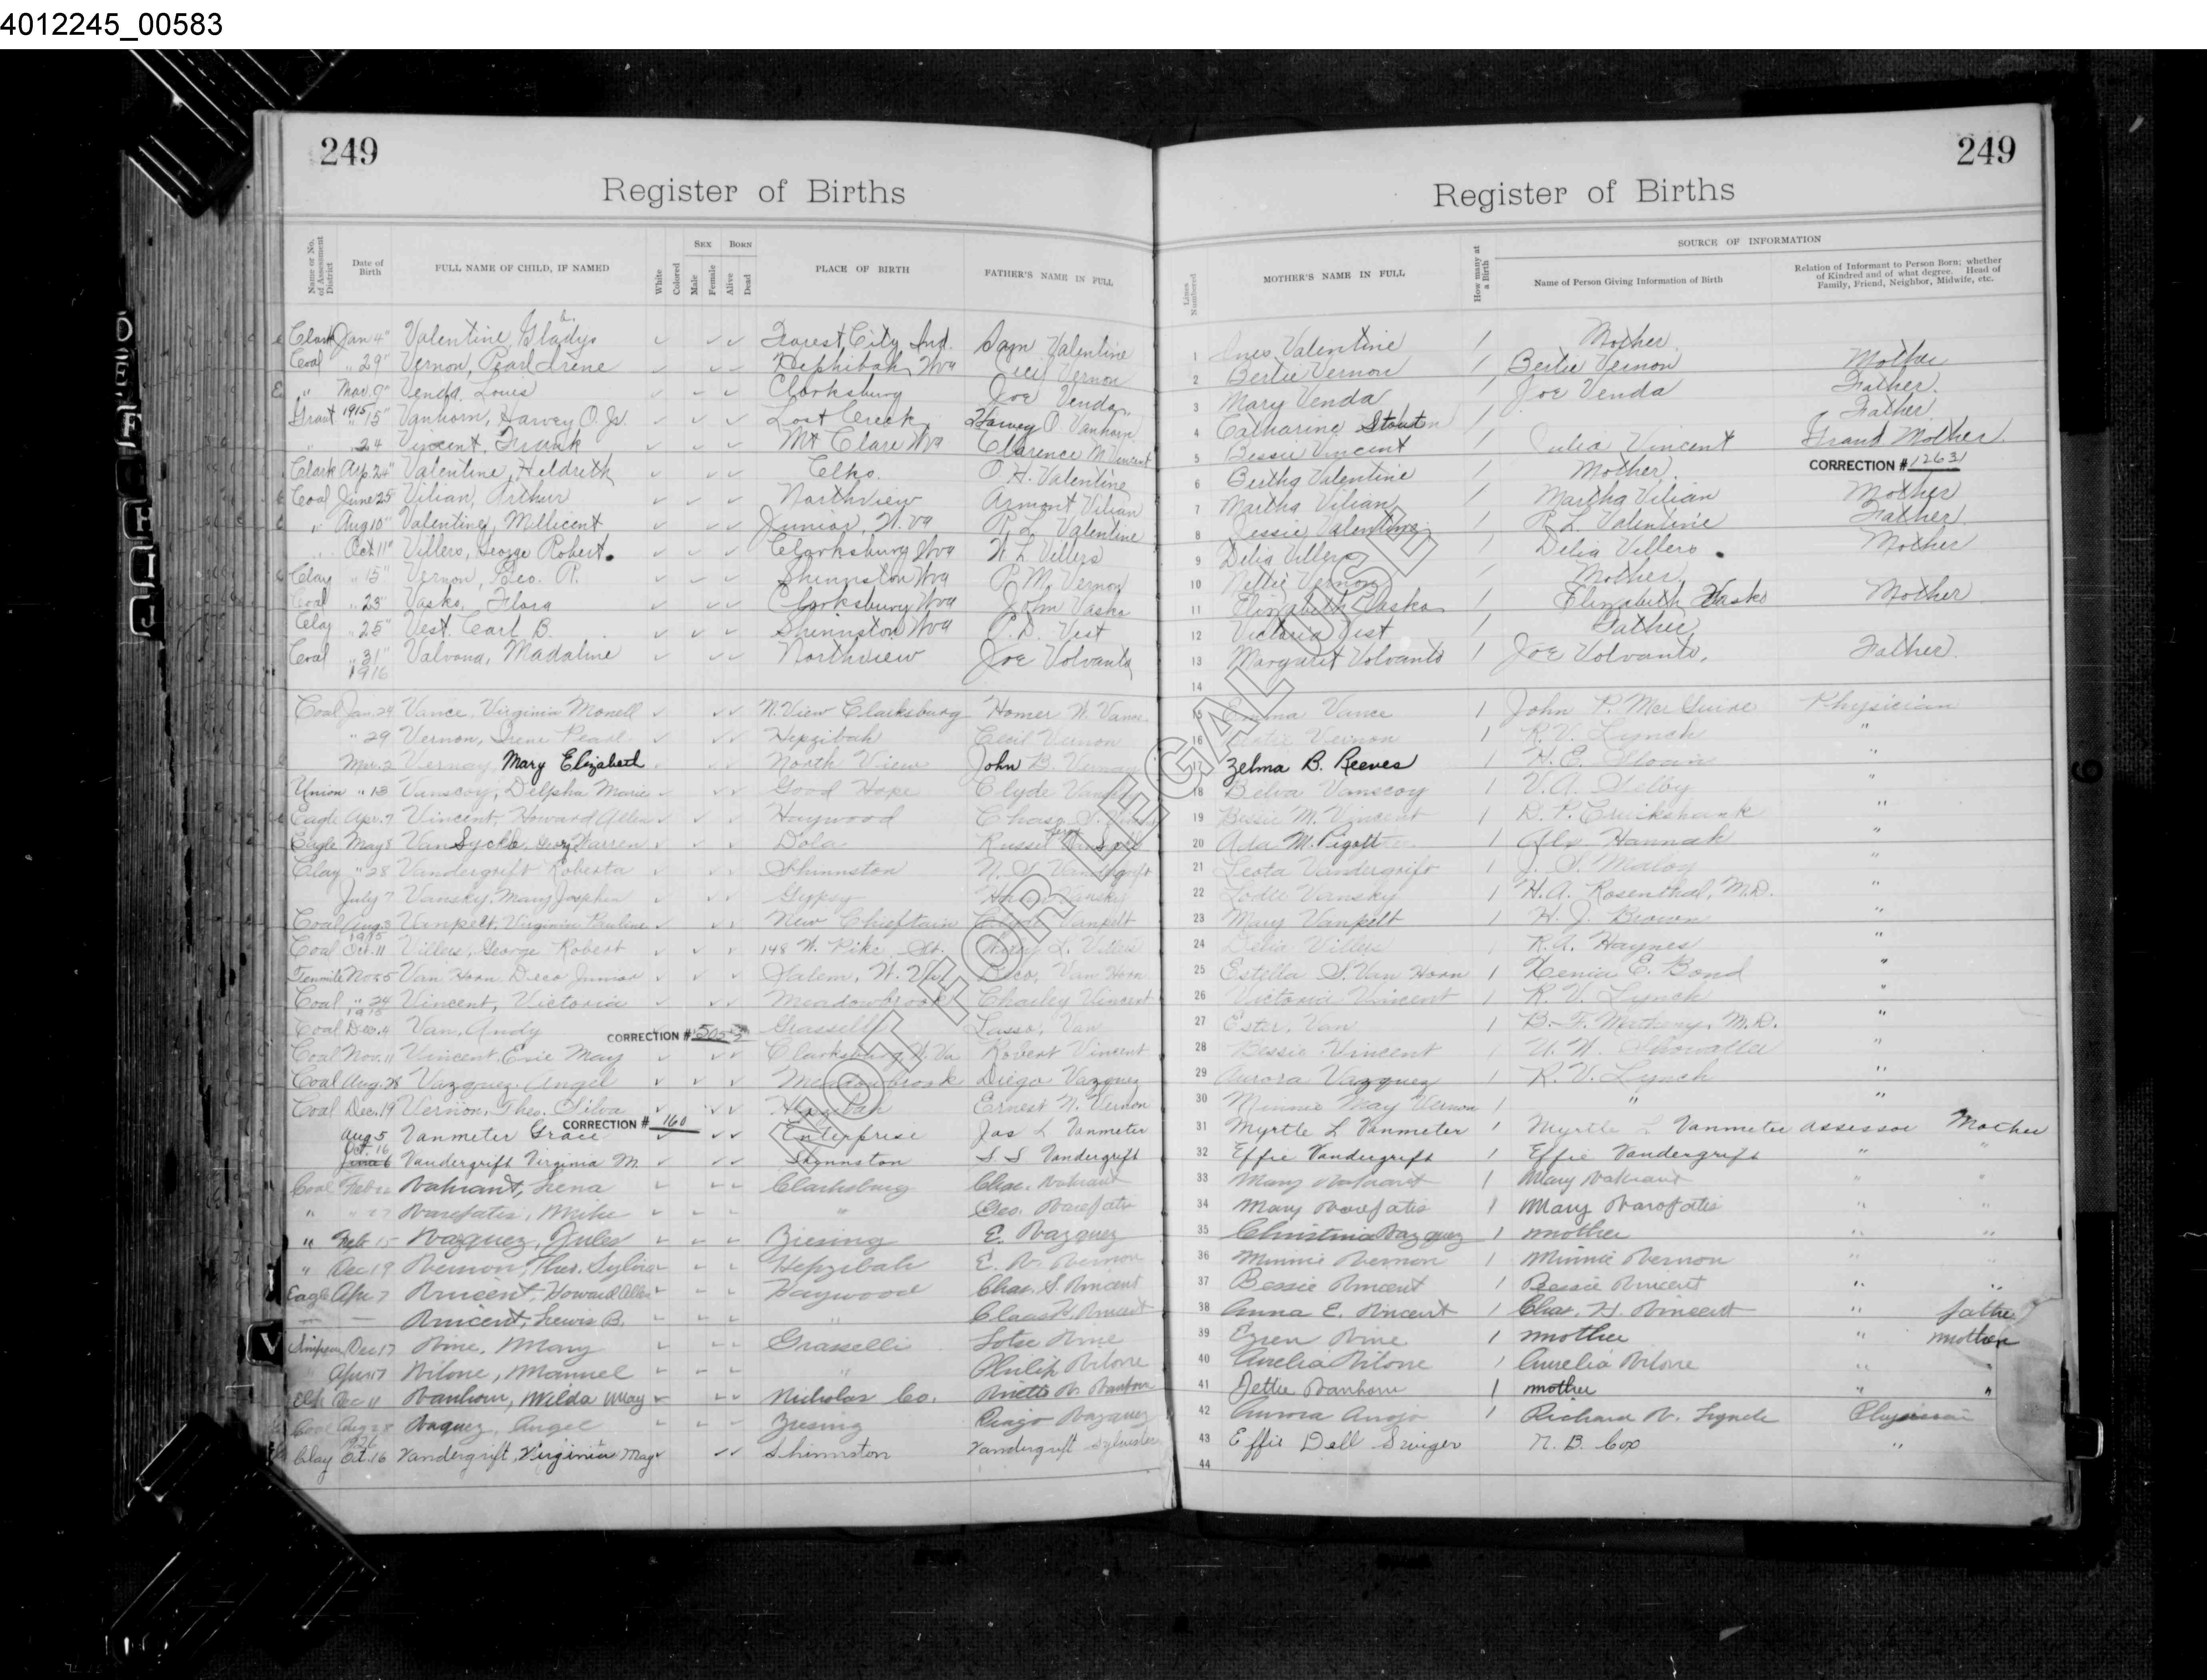 4012245_00583
249
249
Register of Births
Register of Births
Name or No. of Assessment District
Date of Birth
FULL NAME OF CHILD, IF NAMED
White
Colored
SEX
Male
Female
BORN
Alive
Dead
PLACE OF BIRTH
FATHER'S NAME IN FULL
Lines Numbered
MOTHER'S NAME IN FULL
How many at a Birth
SOURCE OF INFORMATION
Name of Person Giving Information of Birth
Relation of Informant to Person Born; whether of Kindred and of what degree. Head of Family, Friend, Neighbor, Midwife, etc.
Clark Jan 4" Valentine, Gladys Forest City Ind. Valentine 1 Ines Valentine 1 Mother
Coal " 29" Vernon, Pearl Irene Hephibah Wva Cecil Vernon 2 Bertie Vernon 1 Bertie Vernon Mother
" 9" Venda, Louis Clarksburg Joe Venda 3 Mary Venda 1 Joe Venda Father
Grant 1915 " 15" Vanhorn, Harvey O. Jr. Lost Creek Harvey O Vanhorn 4 Catharine Stout 1 Father
" 24 Vincent, Frank Mt Clare Wva Clarence M Vincent 5 Bessie Vincent 1 Julia Vincent Grand Mother
Clark Ap. 24" Valentine, Hildreth Elko. O. H. Valentine 6 Bertha Valentine 1 Mother CORRECTION # 1263
Coal June 25 Vilian, Arthur Northview Armont Vilian 7 Martha Vilian 1 Martha Vilian Mother
" Aug 10" Valentine, Millicent Junior, W. va R L Valentine 8 Jessie Valentine 1 R. L. Valentine Father
" Oct. 11" Villers, George Robert. Clarksburg Wva W L Villers 9 Delia Villers 1 Delia Villers Mother
Clay " 15" Vernon, Geo. R. Shinnston Wva R. M. Vernon 10 Nellie Vernon 1 Mother
Coal " 23" Vasko, Flora Clarksburg Wva John Vasko 11 Elizabeth Vasko 1 Elizabeth Vasko Mother
Clay " 25" Vest. Carl B. Shinnston Wva P. D. Vest 12 Victoria Vest 1 Father
Coal " 31" Valvona, Madaline Northview Joe Volvanto 13 Margaret Volvanto 1 Joe Volvanto, Father
1916 14
Coal Jan. 24 Vance, Virginia Monell N. View Clarksburg Homer W. Vance 15 Emma Vance 1 John P. McGuire Physician
" 29 Vernon, Irene Pearl Hepzibah Cecil Vernon 16 Vernon 1 R. V. Lynch "
Mar. 2 Vernay, Mary Elizabeth North View John B. Vernay 17 Zelma B. Reeves 1 H. E. Sloan "
Union " 13 Vanscoy, Delpha Marie Good Hope Clyde 18 Belva Vanscoy 1 V. A. Selby "
Eagle Apr. 7 Vincent, Howard Allen Haywood Chas. S. 19 Bessie M. Vincent 1 D. P. Cruikshank "
Eagle May 8 VanSyckle, Warren Dola Russel 20 Ada M. Pigott 1 Alex Hannah "
Clay " 28 Vandergrift Roberta Shinnston N. S. Vandergrift 21 Leota Vandergrift 1 J. S. Maloy "
July 7 Vansky, Mary Josephin Gypsy Vansky 22 Vansky 1 H. A. Rosenthal, M.D. "
Coal Aug. 3 Vanpelt, Virginia Pauline New Chieftain Clyde Vanpelt 23 Mary Vanpelt 1 H. J. Brown "
Coal 1915 Oct. 11 Villers, George Robert 148 W. Pike St. L. Villers 24 Delia Villers 1 R. A. Haynes "
Tenmile Nov 5 Van Horn Deco Junior Salem, W. Va. Deco, Van Horn 25 Estella S. Van Horn 1 Xenia E. Bond "
Coal " 24 Vincent, Victoria Meadowbrook Charley Vincent 26 Victoria Vincent 1 R. V. Lynch "
Coal 1915 Dec. 4 Van, Andy CORRECTION # Grasselli Lasso, Van 27 Ester, Van 1 B. F. Matheny, M.D. "
Coal Nov. 11 Vincent, Evie May Clarksburg W. Va Robert Vincent 28 Bessie Vincent 1 Showalter "
Coal Aug. 28 Vazquez, Angel Meadowbrook Diego Vazquez 29 Aurora Vazquez 1 R. V. Lynch "
Coal Dec. 19 Vernon, Theo. Silva Hepzibah Ernest N. Vernon 30 Minnie May Vernon 1 " "
CORRECTION # 160
Aug 5 Vanmeter Grace Enterprise Jas L Vanmeter 31 Myrtle L Vanmeter 1 Myrtle L Vanmeter assessor Mother
Oct. 16 Vandergrift Virginia M. Shinnston S S Vandergrift 32 Effie Vandergrift 1 Effie Vandergrift " "
Coal Feb Lena Clarksburg Chas. 33 Mary 1 Mary " "
" " 27 Mike " Geo. 34 Mary 1 Mary " "
" Feb 15 Vazquez, Jules Ziesing E. Vazquez 35 Christina Vazquez 1 mother " "
" Dec 19 Vernon, Theo. Sylvia Hepzibah E. N. Vernon 36 Minnie Vernon 1 Minnie Vernon "
Eagle Apr. 7 Vincent, Howard Allen Haywood Chas. S. Vincent 37 Bessie Vincent 1 Bessie Vincent " "
— — Vincent, Lewis B. " H. Vincent 38 Anna E. Vincent 1 Chas. H. Vincent " father
Simpson Dec 17 Vine, Mary Grasselli Vine 39 Vine 1 mother " mother
Apr 17 Vilone, Manuel " Philip Vilone 40 Aurelia Vilone 1 Aurelia Vilone " "
Elk Dec 11 Vanhorn, Wilda May Nicholas Co. Vanhorn 41 Jettie Vanhorn 1 mother " "
Coal Aug 28 Vaquez, Angel Ziesing Diago Vazquez 42 Aurora 1 Richard V. Lynch Physician
Clay Oct. 16 Vandergrift, Virginia May Shinnston Vandergrift Sylvester 43 Effie Dell Swiger N. B. Cox "
44
NOT FOR LEGAL USE
F
H
I
J
V